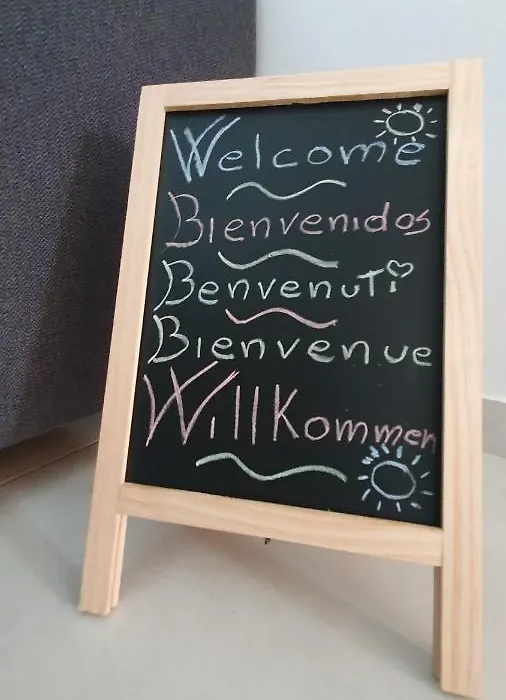 Welcome
Bienvenidos
Benvenuti
Bienvenue
Willkommen